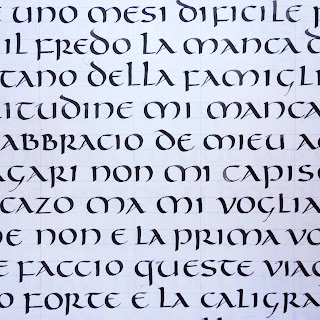 E UNO MESI DIFICILE
IL FREDO LA MANCA
TANO DELLA FAMIGLI
ITUDINE MI MANCA
ABBRACIO DE MIEU A
AGARI NON MI CAPISC
CAZO MA MI VOGLIA
E NON E LA PRIMA VO
E FACCIO QUESTE VIAG
O FORTE E LA CALIGRA